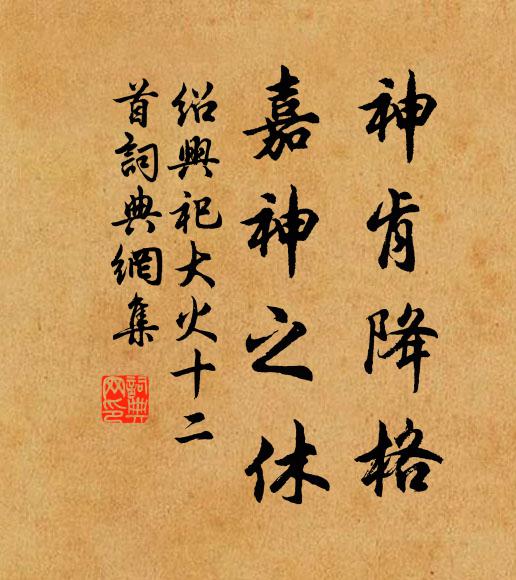 神肯降格
嘉神之休
紹興祀大火十二
首詞典網集
詞典
网印